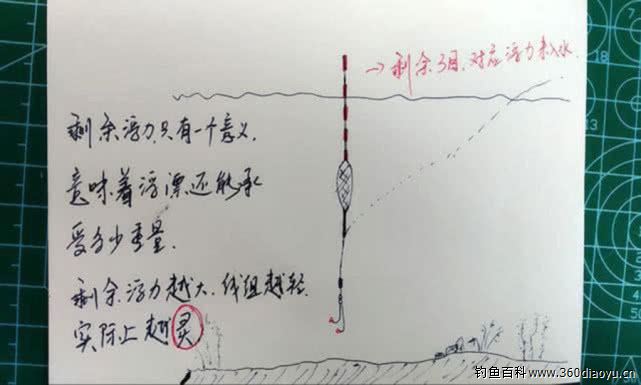 →剩余3目,对应浮力未入水.
剩余浮力只有一个意义,
意味着浮漂还能承
受多少重量.
剩余浮力越大,线组越轻.
实际上越灵
钓鱼百科—www.360diaoyu.cn